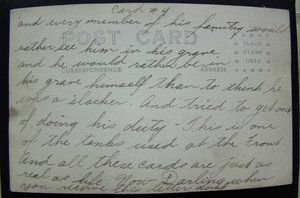 Card #4
and every member of his family would
rather see him in his grave
POST CARD
PLACE
STAMP
HERE
and he would rather be in
CORRESPONDENCE
ADDRESS
his grave himself than to think he
was a slacker. And tried to get out
of doing his duty. This is one
of the tanks used at the Front.
And all these cards are just as
real as life. Now Darling when
you receive this letter